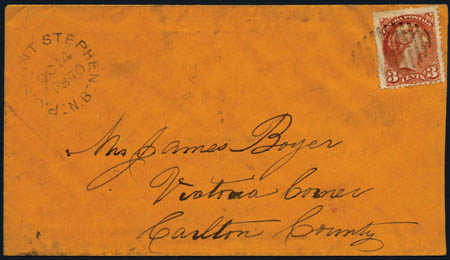 SAINT STEPHEN. N.B.
OC 14
1870
CANADA POSTAGE
3 CENTS 3
Mrs James Boyer
Victoria Corner
Carlton County